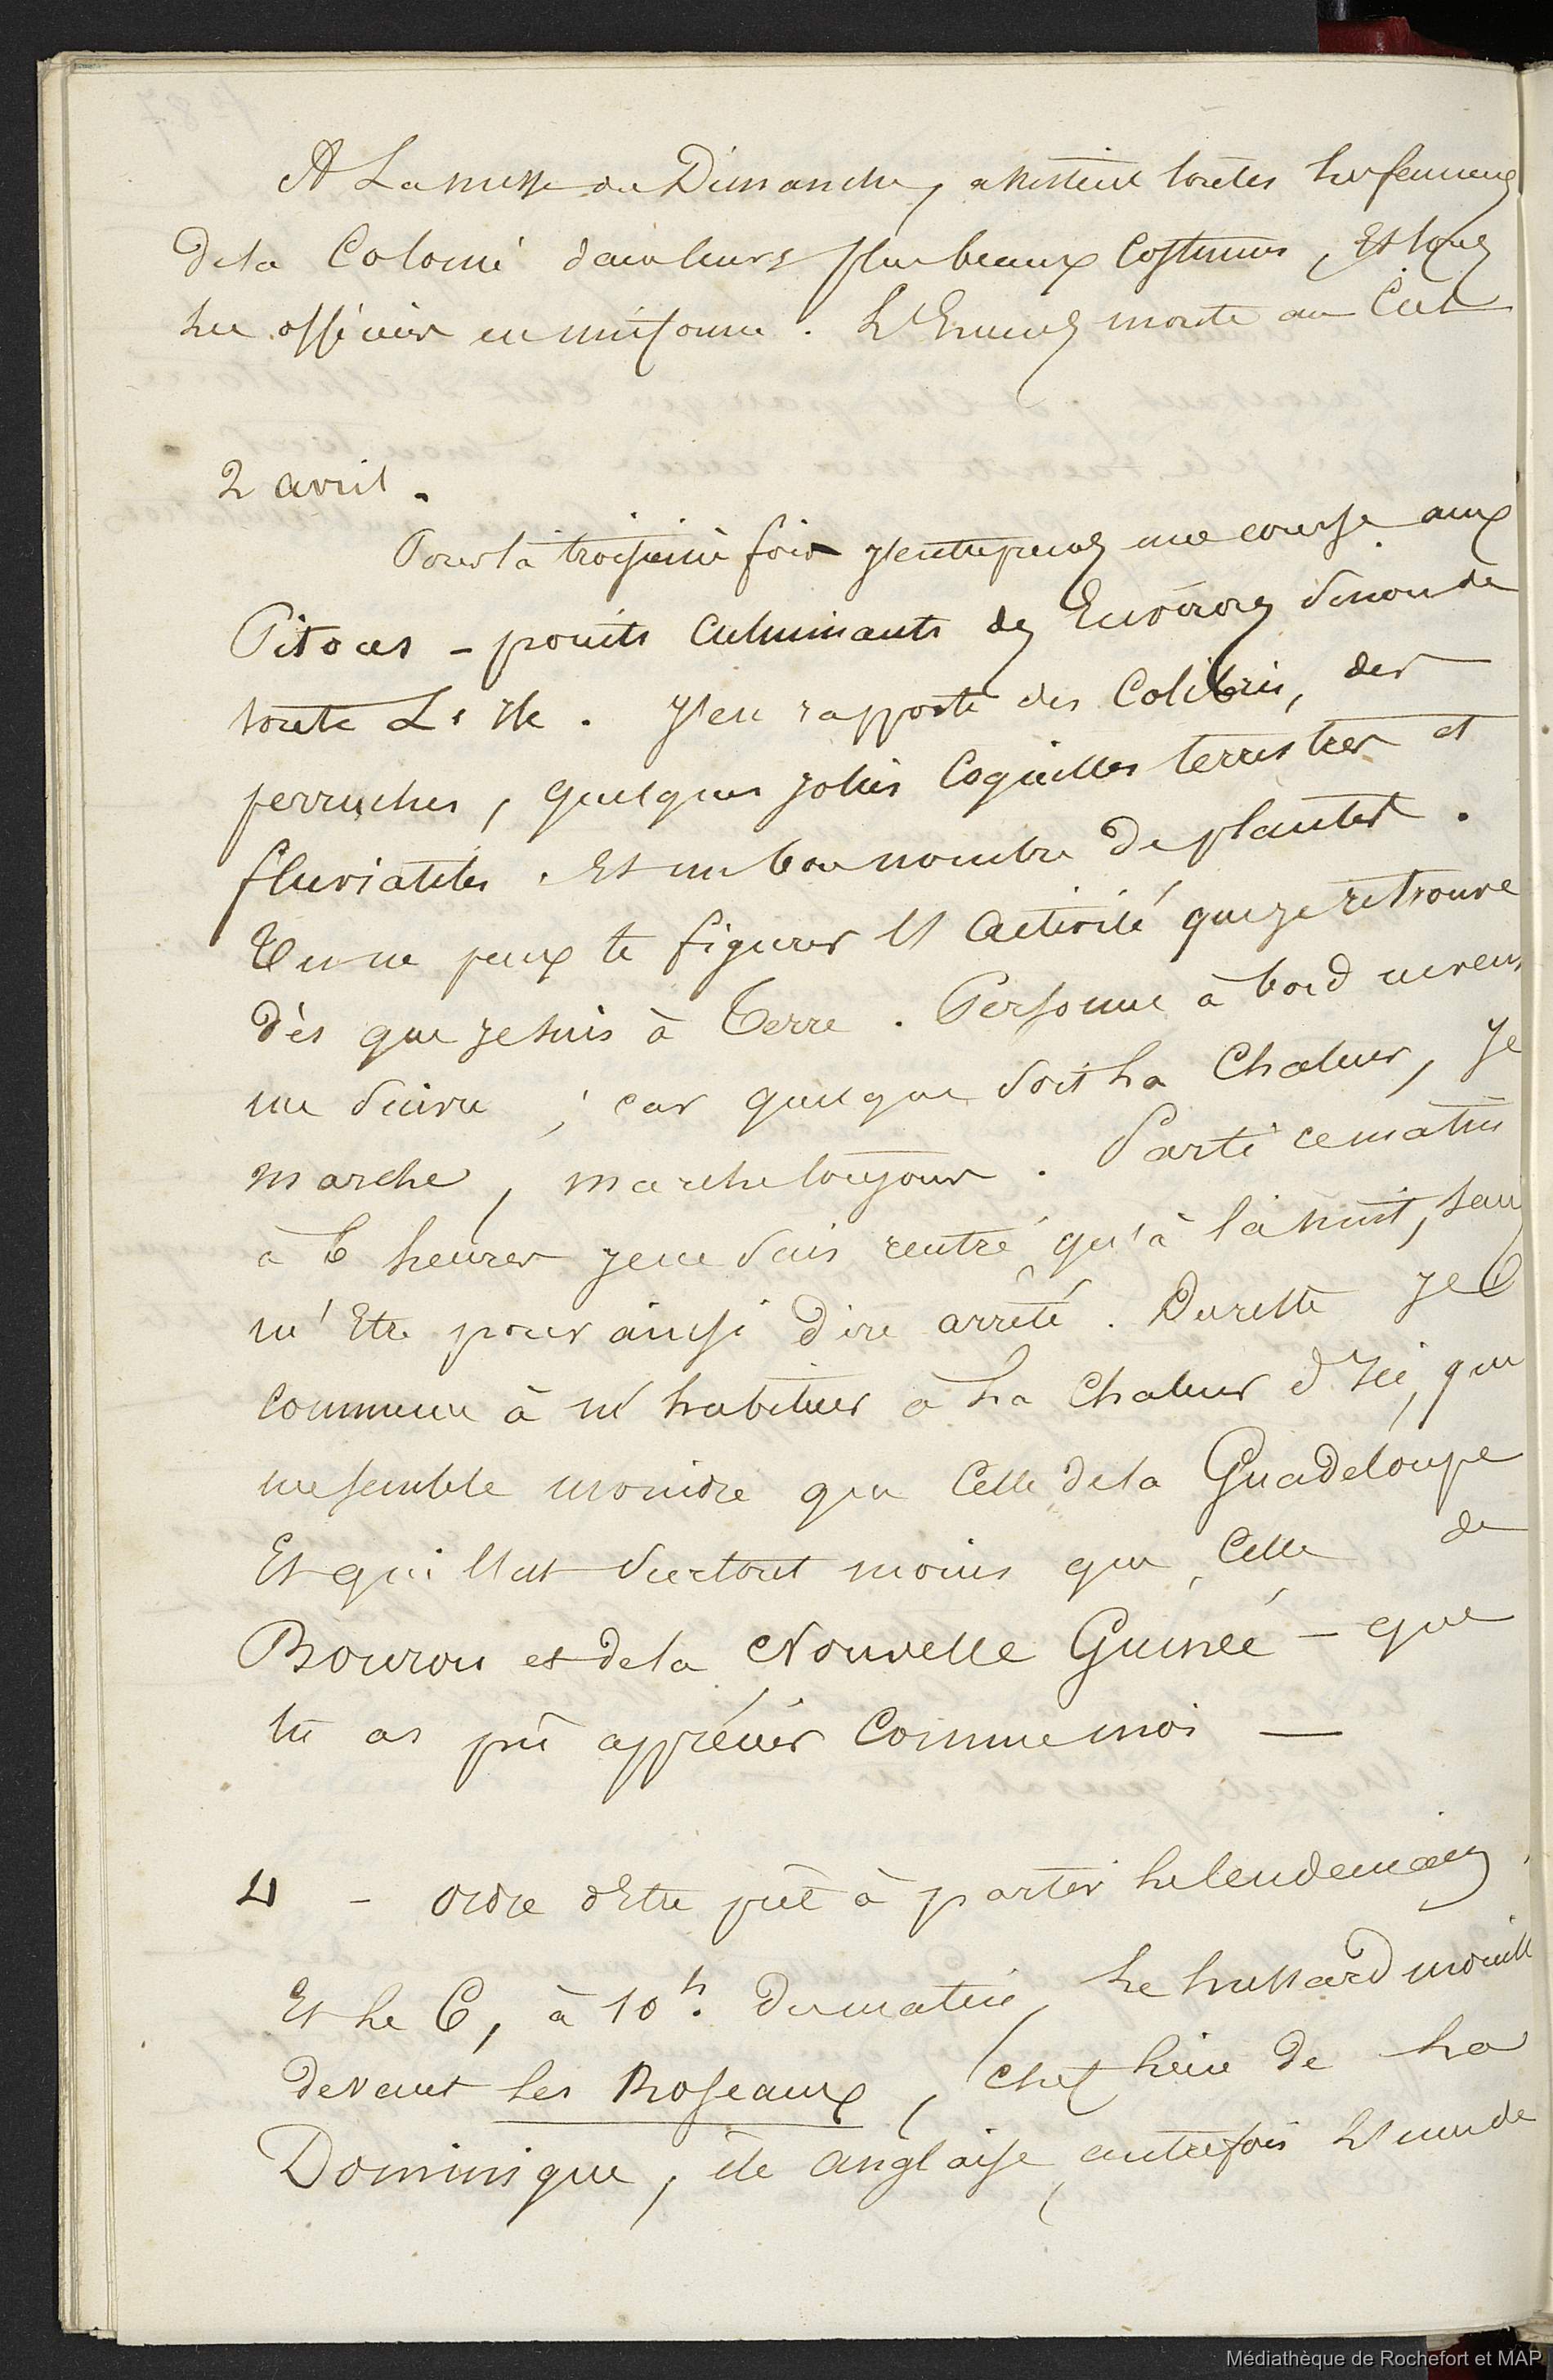 A La messe du Dimanche, assistent toutes les femmes
de la Colonie dans leurs plus beaux Costumes, Et tous
les officier en uniforme. L'Encens monte au Ciel
2 avril.
Pour la troisieme fois j'entreprends une course aux
Pitons - points Culminants des Environs sinon de
toute L'Ile. J'en rapporte des Colibris, des
perruches, quelques jolies Coquilles terrestres et
fluviatiles. Et un bon nombre de plantes.
Tu ne peux te figurer l'activité que je retrouve
dès que je suis à Terre. Personne à bord ne veut
me suivre; car quelque soit la Chaleur, Je
marche, marche toujours. Parti ce matin
à 6 heures je ne suis rentré qu'à la nuit, sans
m'Etre pour ainsi dire arrêté. Du reste je
commence à m'habituer à la Chaleur d'Ici, qui
me semble moindre que Celle de la Guadeloupe
Et qui l'est surtout moins que Celle de
Bourou et de la Nouvelle Guinée - que
tu as pû apprécier Comme moi —
4 - ordre d'Etre prêt à partir le lendemain,
Et le 6, à 10h. du matin, le hussard mouille
devant les Roseaux, Chef lieu de la
Dominique, île anglaise, autrefois l'une de
Médiathèque de Rochefort et MAP